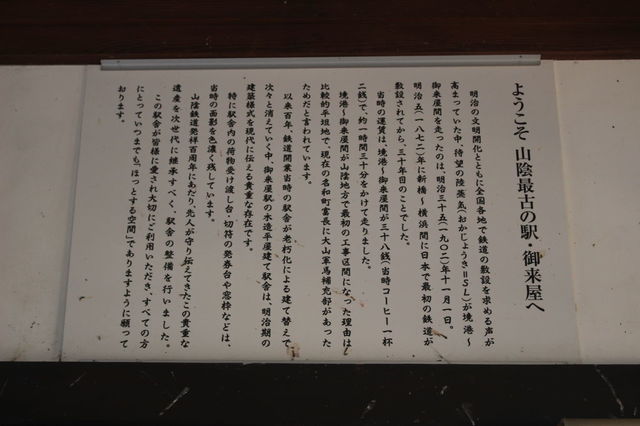 ようこそ 山陰最古の駅・御来屋へ
明治の文明開化とともに全国各地で鉄道の敷設を求める声が
高まっていた中、待望の陸蒸気(おかじょうき=SL)が境港〜
御来屋間を走ったのは、明治三十五(一九〇二)年十一月一日。
明治五(一八七二)年に新橋〜横浜間に日本で最初の鉄道が
敷設されてから、三十年目のことでした。
当時の運賃は、境港〜御来屋間が三十八銭(当時コーヒー一杯
二銭)で、約一時間三十分をかけて走りました。
境港〜御来屋間が山陰地方で最初の工事区間になった理由は
比較的平坦地で、現在の名和町富長に大山軍馬補充部があった
ためだと言われています。
以来百年、鉄道開業当時の駅舎が老朽化による建て替えで
次々と消えていく中、御来屋駅の木造平屋建て駅舎は、明治期の
建築様式を現代に伝える貴重な存在です。
特に駅舎内の荷物受け渡し台・切符の発券台や窓枠などは、
当時の面影を色濃く残しています。
山陰鉄道発祥百周年にあたり、先人が守り伝えてきたこの貴重な
遺産を次世代に継承すべく、駅舎の整備を行いました。
この駅舎が皆様に愛され大切にご利用いただき、すべての方
にとっていつまでも「ほっとする空間」でありますように願って
おります。